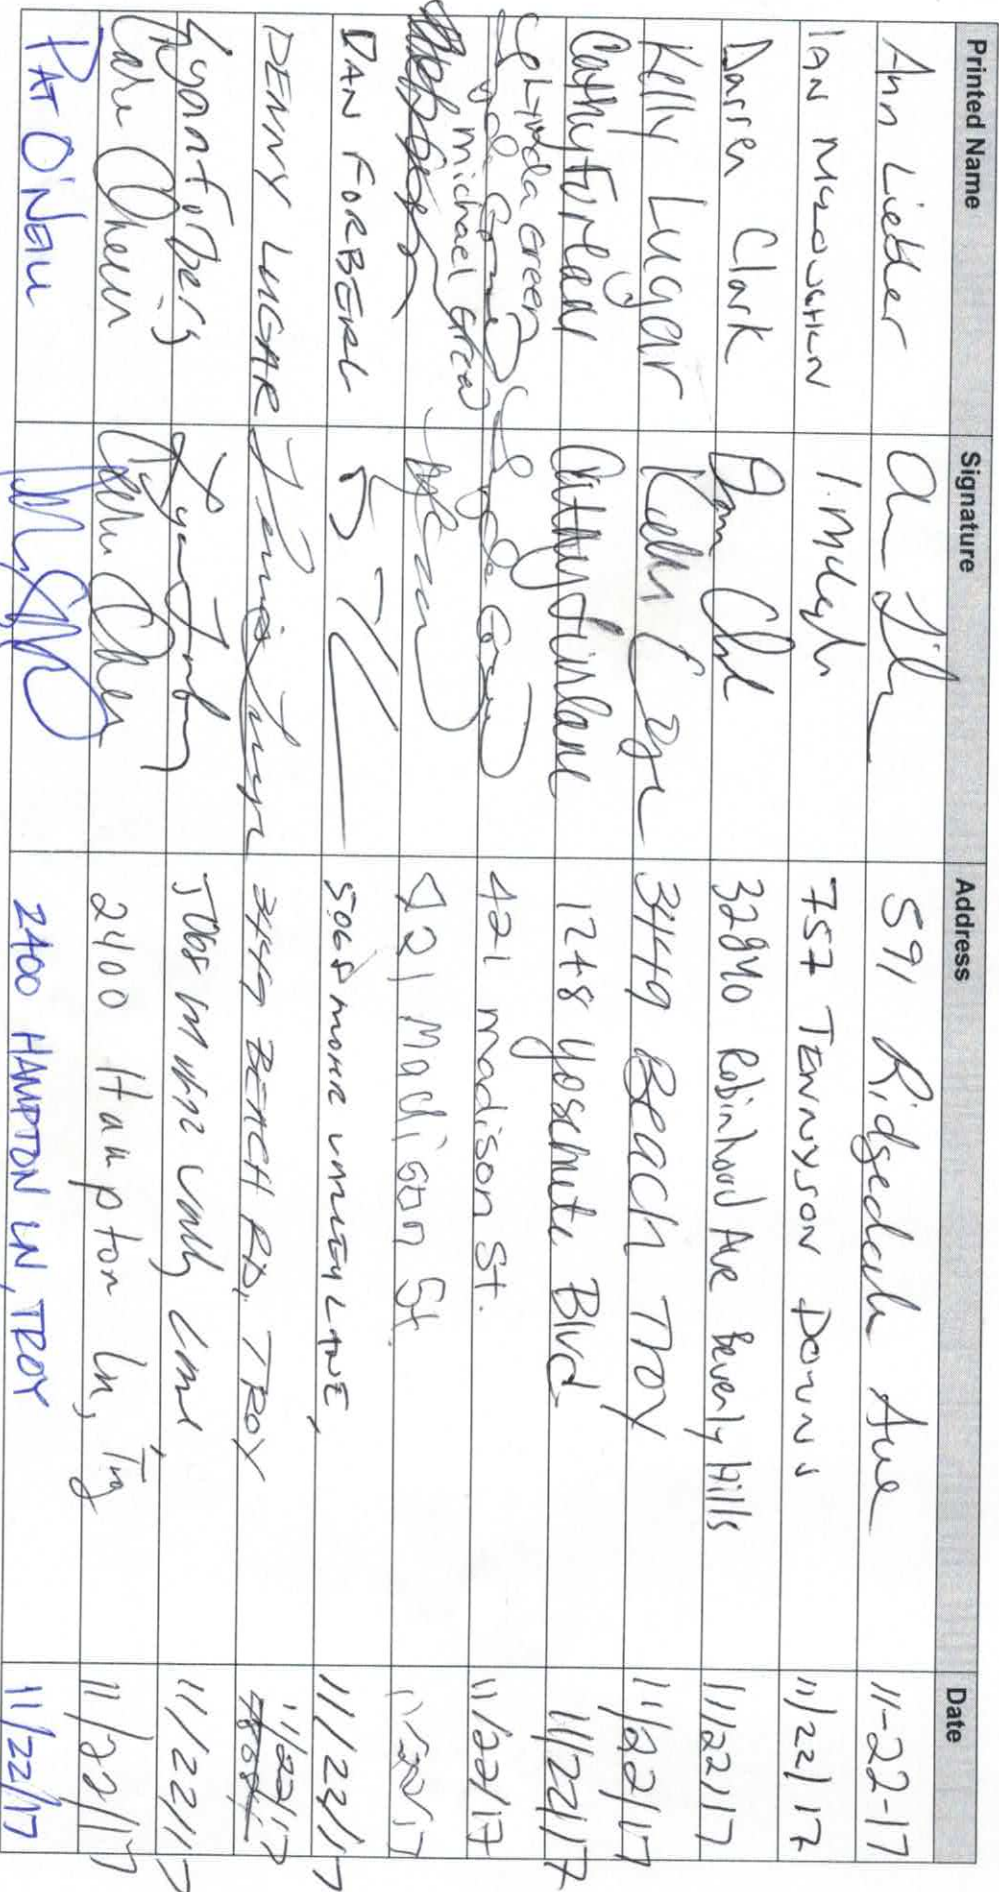 Printed Name Signature Address Date
Ann Lieder 591 Ridgedale Ave 11-22-17
IAN 757 TENNYSON DOWNS 11/22/17
Darren Clark 32840 Robinhood Ave Beverly Hills 11/22/17
Kelly Lugar 3449 Beach Troy 11/22/17
Cathy Finlane Cathy Finlane 1248 Yosemite Blvd 11/22/17
Lynda Green 421 madison St. 11/22/17
michael Green 421 Madison St 11/22/17
DAN FORBERG 5068 MOHR VALLEY LANE, 11/22/17
DENNY LUGAR 3449 BEACH RD, TROY 11/22/17
Lynn Forberg 5068 Lane 11/22/17
2400 Hampton Ln, Troy 11/22/17
PAT O'NEILL 2400 HAMPTON LN, TROY 11/22/17